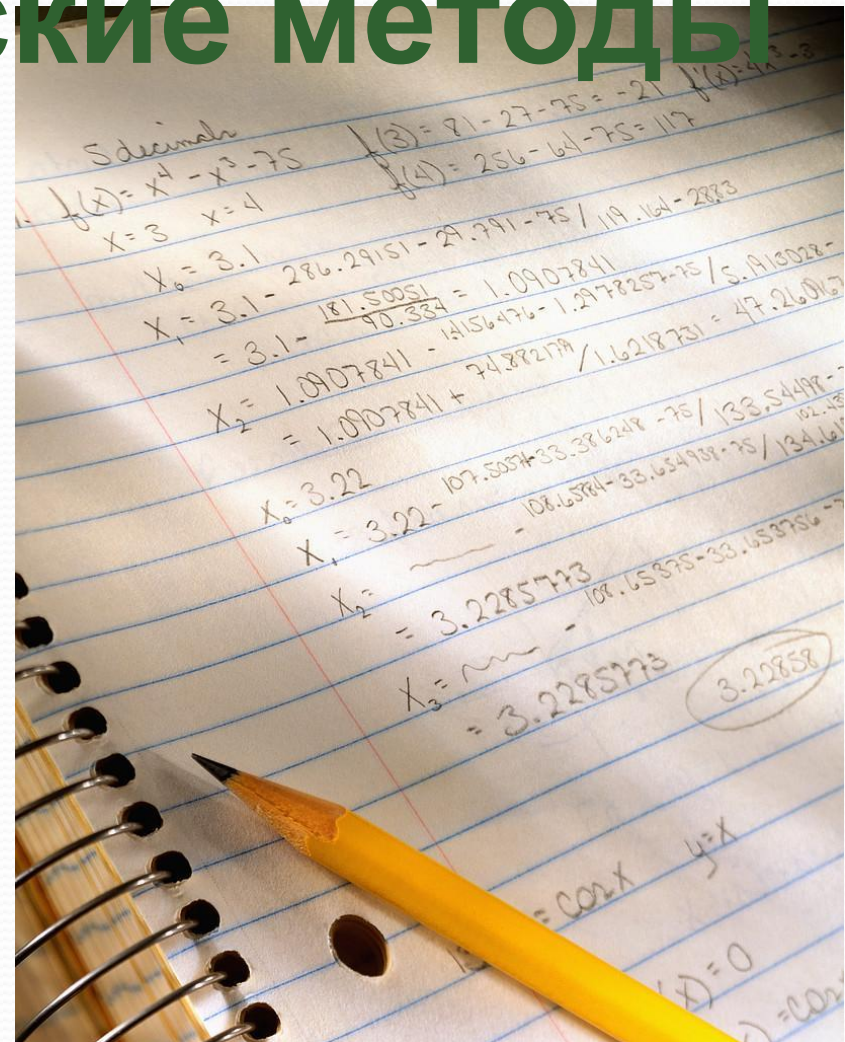 ские методы
5 decimals f(3) = 81 - 27 - 75 = -21 f'(x) = 4x³ - 3
1. f(x) = x⁴ - x³ - 75 f(4) = 256 - 64 - 75 = 117
x = 3 x = 4
X₀ = 3.1
X₁ = 3.1 - 286.29151 - 29.791 - 75 / 119.164 - 28.83
= 3.1 - 181.50051 / 90.334 = 1.0907841
X₂ = 1.0907841 - 1.4156476 - 1.2978257 - 75 / 5.1913028 -
= 1.0907841 + 74.882179 / 1.6218731 = 47.26
X₀ = 3.22
X₁ = 3.22 - 107.5037 - 33.386248 - 75 / 133.54498 -
X₂ = - 108.6584 - 33.654938 - 75 / 134.61
= 3.2285773
X₃ = - 108.65375 - 33.653756 -
= 3.2285773 3.22858
= cosx y = x
(x) = 0
) = cos